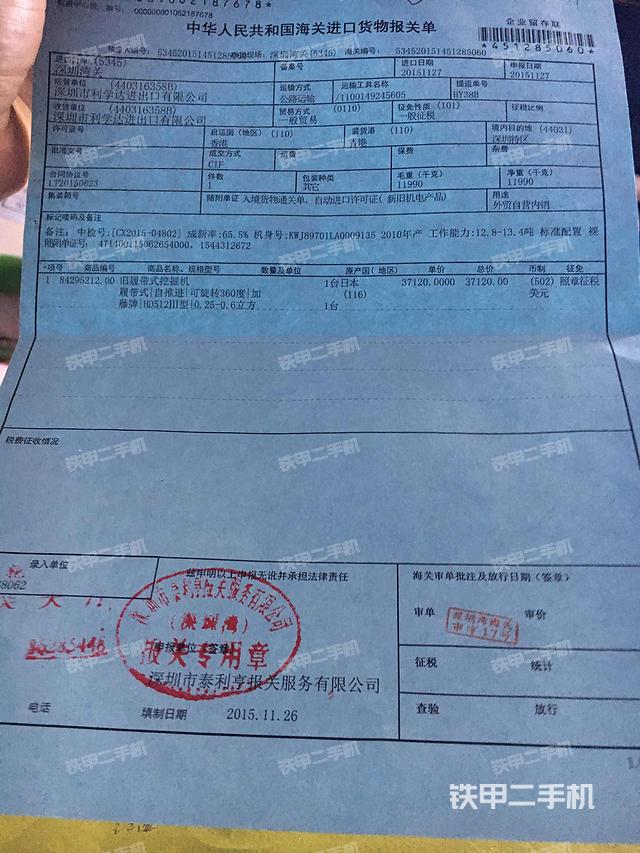 000000001062187678
中华人民共和国海关进口货物报关单
企业留存联
*451285060*
申报现场：深圳湾关(5345)
海关编号：534520151451285060
进口口岸 (5345)
深圳湾关
备案号
进口日期
20151127
申报日期
20151127
经营单位 (440316358B)
深圳市利学达进出口有限公司
运输方式
公路运输
运输工具名称
/1100149245605
提运单号
HY38B
收货单位 (440316358B)
深圳市利学达进出口有限公司
贸易方式 (0110)
一般贸易
征免性质 (101)
一般征税
征税比例
许可证号
启运国（地区） (110)
香港
装货港 (110)
香港
境内目的地 (44031)
深圳特区
批准文号
成交方式
CIF
运费
保费
杂费
合同协议号
1720150623
件数
1
包装种类
其它
毛重（千克）
11990
净重（千克）
11990
集装箱号
随附单证 入境货物通关单，自动进口许可证( 新旧机电产品)
用途
外贸自营内销
标记唛码及备注
备注：中检号：[CX2015-04802] 成新率：65.5% 机身号：KWJ89701LA0009135 2010年产 工作能力：12.8-13.4吨 标准配置 裸
随附单证号：471400115062654000，1544312672
项号 商品编号 商品名称、规格型号 数量及单位 原产国（地区） 单价 总价 币制 征免
1 84295212.00 旧履带式挖掘机 1台 日本 37120.0000 37120.00 (502) 照章征税
履带式|自推进|可旋转360度|加 (116) 美元
藤牌|HD512Ⅲ型|0.25-0.6立方 1台
税费征收情况
录入单位
兹申明以上申报无讹并承担法律责任
海关审单批注及放行日期（签章）
深圳市泰利亨报关服务有限公司
（深圳湾）
报关专用章
申报单位（签章）
深圳市泰利亨报关服务有限公司
审单
深圳湾海关
审价
征税
统计
电话
填制日期
2015.11.26
查验
放行
铁甲二手机